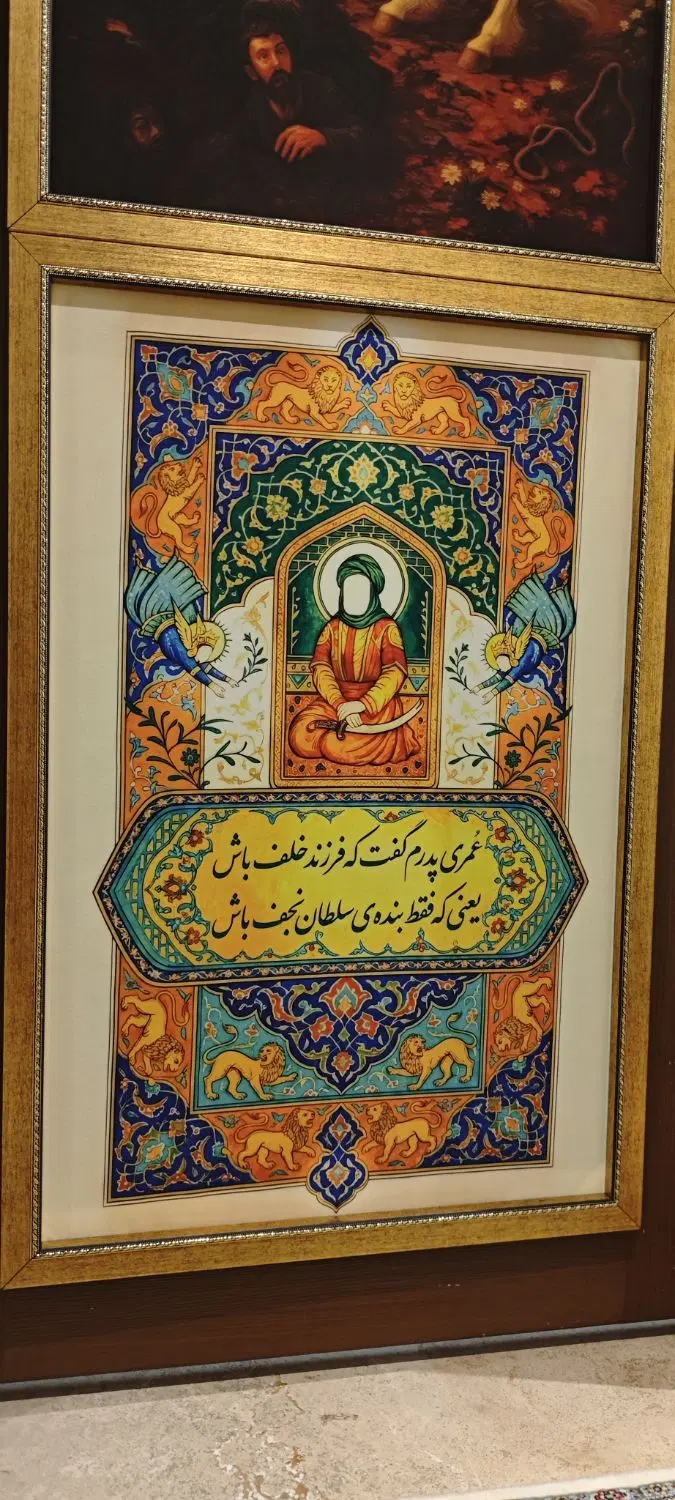 عُمری پدرم گفت که فرزند خلف باش
یعنی که فقط بنده‌ی سلطان نجف باش